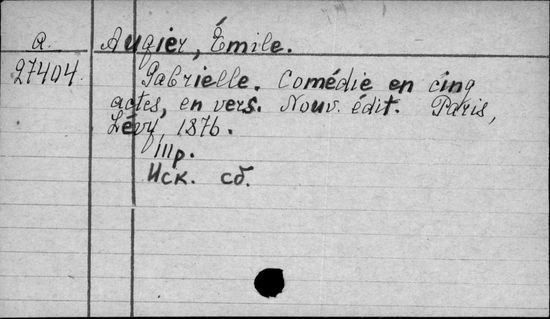 А. Augier, Émile.
27404. Gabrielle. Comédie en cinq
actes, en vers. Nouv. édit. Paris,
Lévy, 1876.
111p.
Иск. сб.